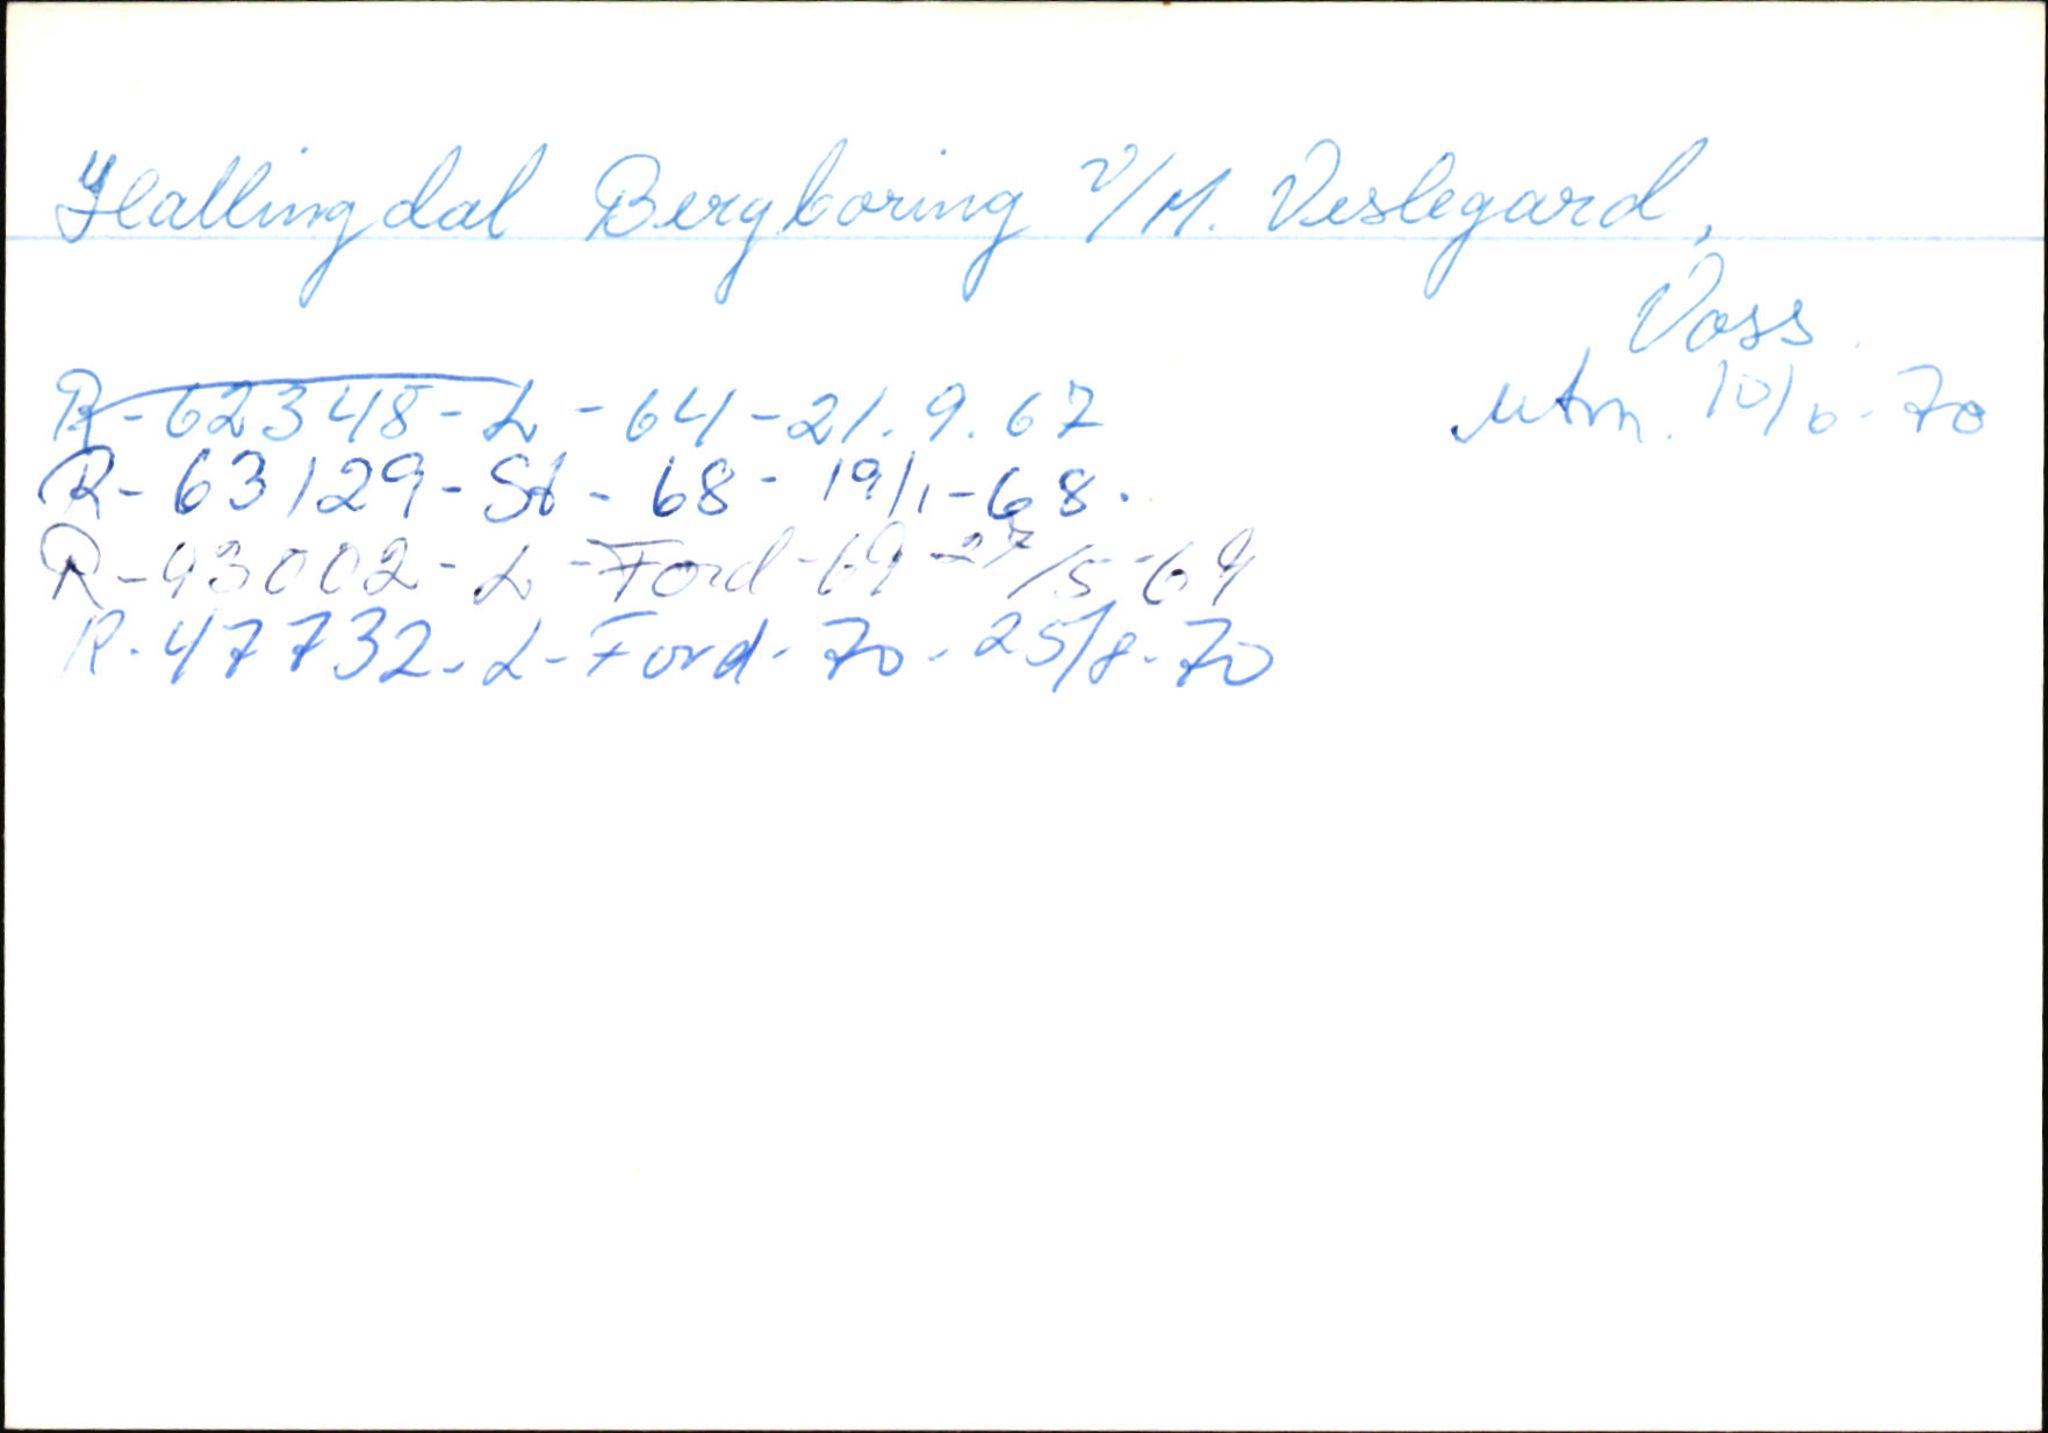 Hallingdal Bergboring v/M. Veslegard,
Voss.
utm. 10/6-70
R-62348-L-64-21.9.67
R-63129-St-68-19/1-68.
R-93002-L-Ford-69-27/5-69
R-47732-L-Ford-70-25/8-70